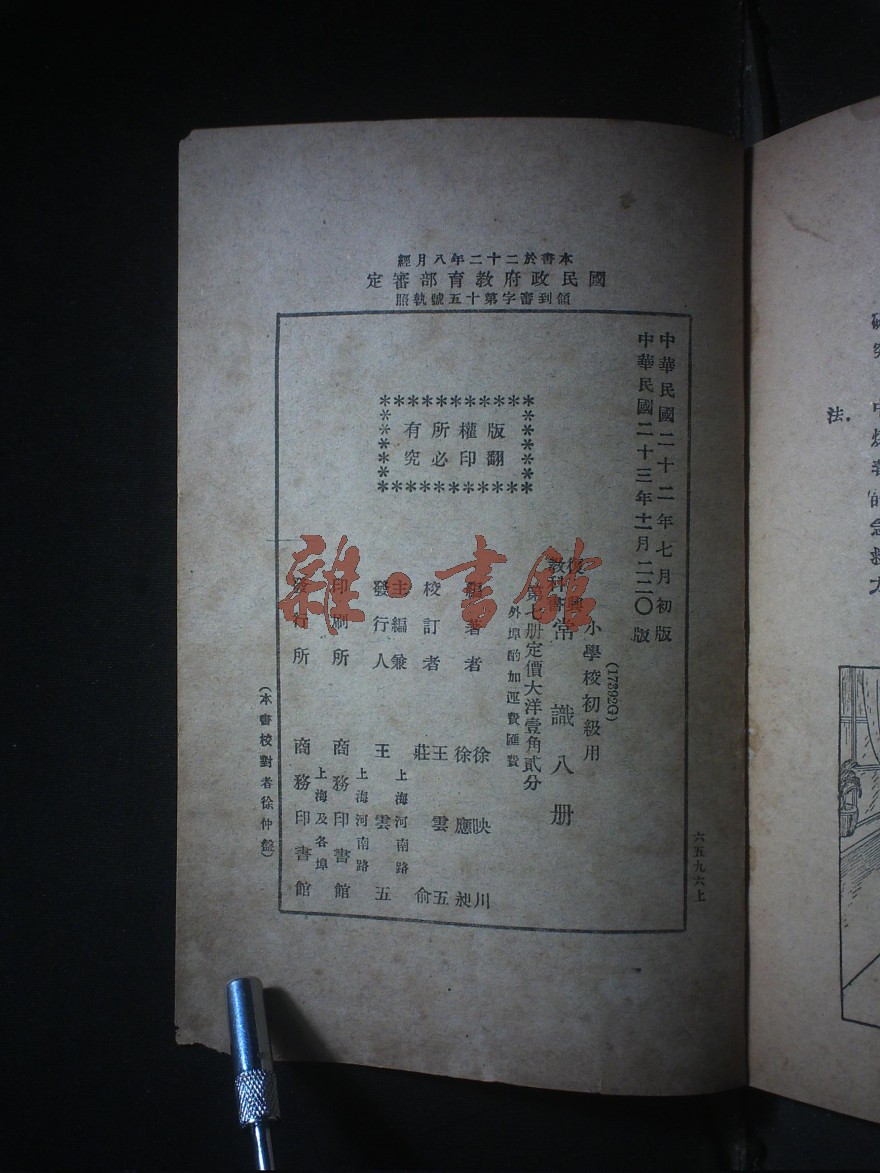 本書於二十二年八月經
國民政府教育部審定
領到審字第十五號執照
中華民國二十二年七月初版
中華民國二十三年十一月二二〇版
(17392G)
小學校初級用
復興
教科書
常識八册
第七册定價大洋壹角貳分
外埠酌加運費匯費
版權所有
翻印必究
編著者
徐映川
徐應昶
校訂者
王雲五
莊俞
主編兼
發行人
上海河南路
王雲五
印刷所
上海河南路
商務印書館
發行所
上海及各埠
商務印書館
(本書校對者徐仲盤)
六五九六上
雜·書館
法.